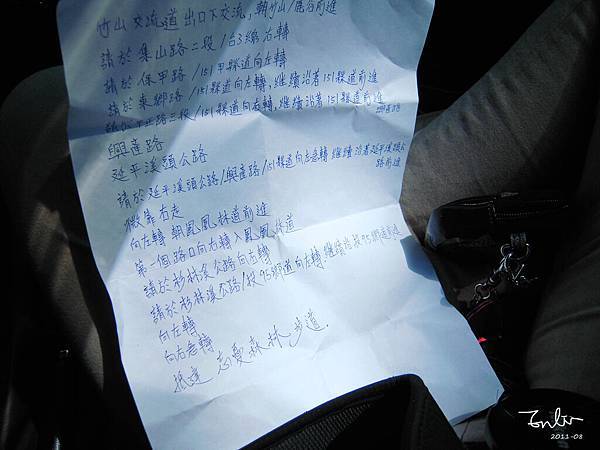 竹山交流道出口下交流，朝竹山/鹿谷前進
請於集山路二段/台3線右轉
請於保甲路/151甲縣道向左轉
請於東鄉路/151縣道向左轉，繼續沿著151縣道前進
路三段/151縣道向左轉，繼續沿著151縣道前進
興產路
延平溪頭公路
請於延平溪頭公路/興產路/151縣道向左急轉繼續沿著延平溪頭公路前進
微靠右走
向左轉 朝鳳凰林道前進
第一個路口向右轉入鳳凰林道
請於杉林溪公路向左轉
請於杉林溪公路/投95鄉道向左轉 繼續沿投95鄉道前進
向左轉
向右急轉
抵達 忘憂森林步道.
2011-08